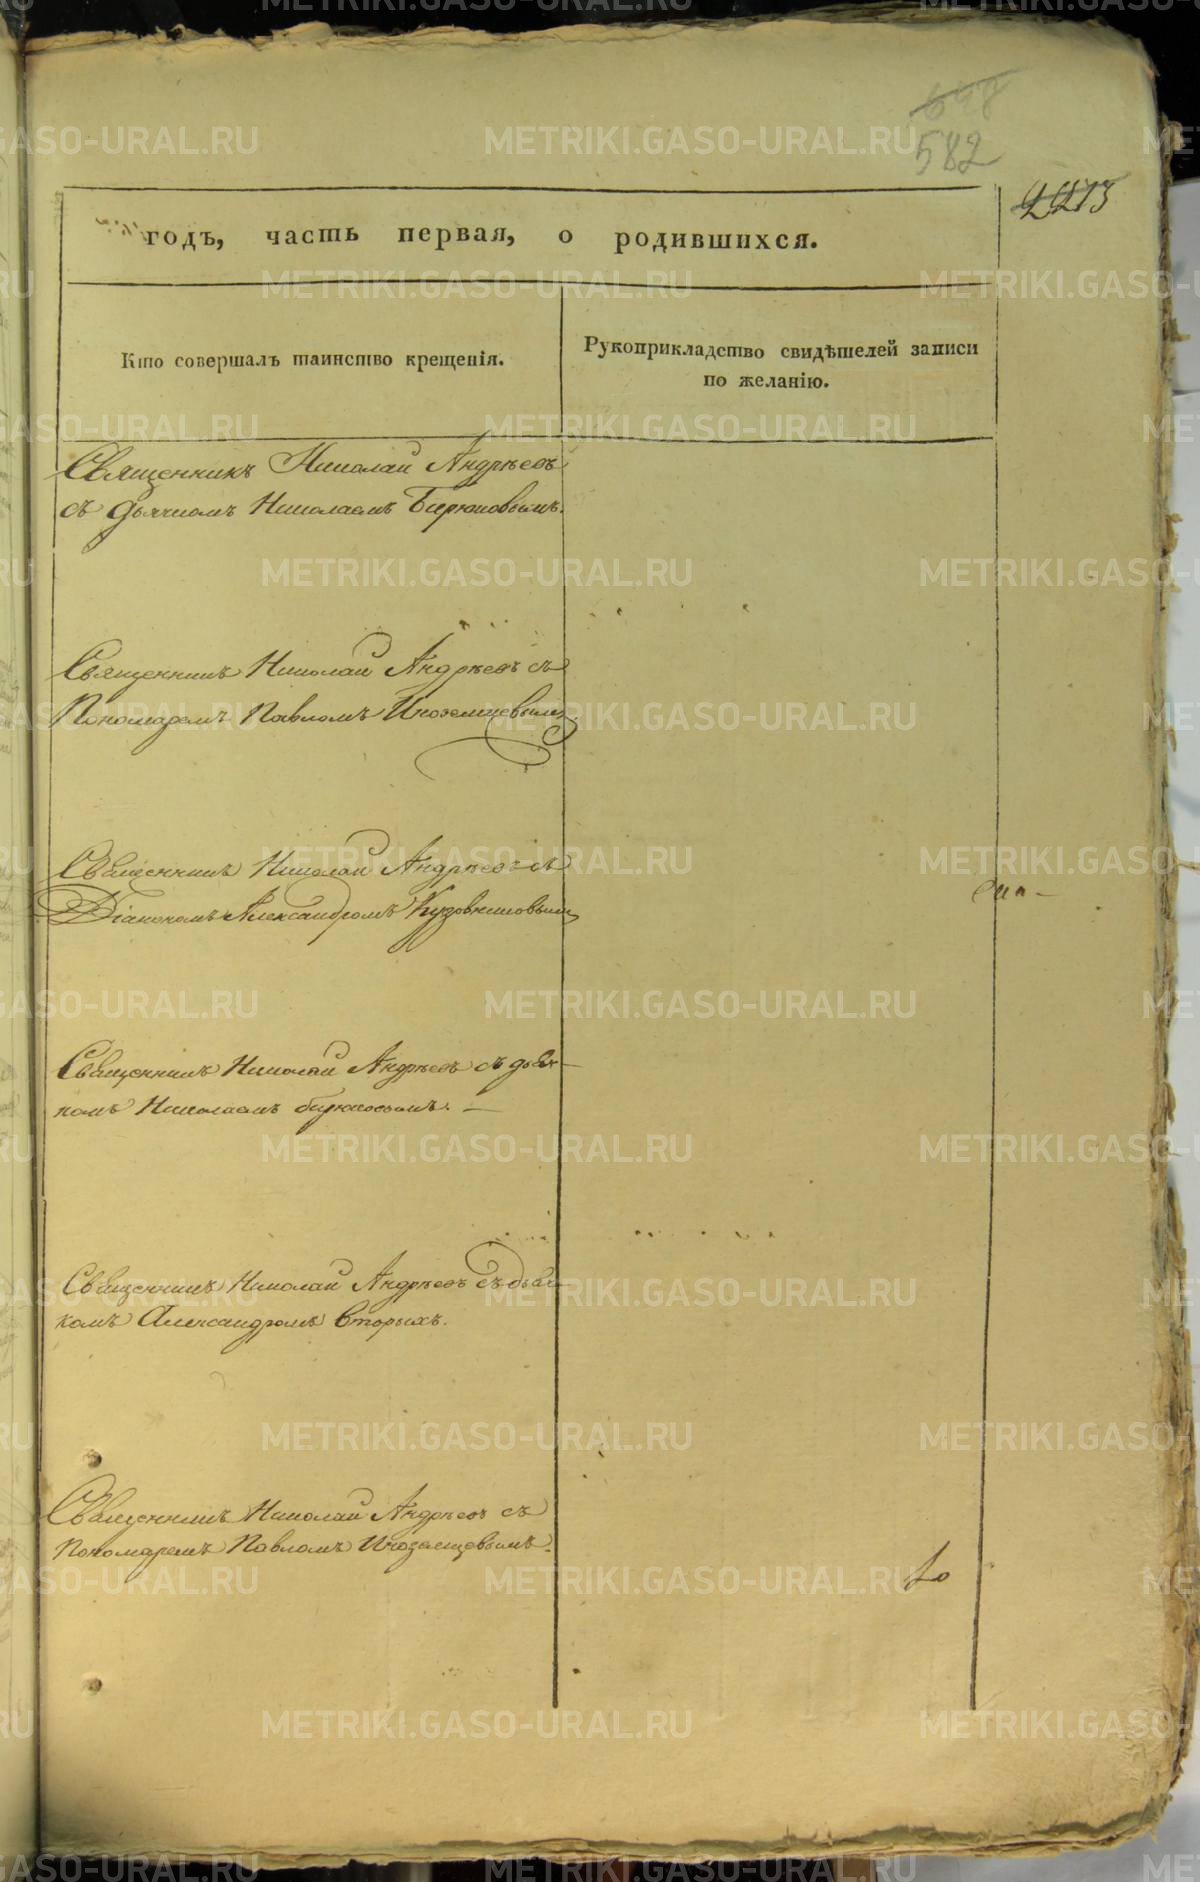 648
582
2213
годъ, часть первая, о родившихся.
Кто совершалъ таинство крещенія.
Рукоприкладство свидѣтелей записи
по желанію.
Священникъ Николай Андрѣевъ
съ дьячкомъ Николаемъ Бирюковымъ.
Священникъ Николай Андрѣевъ съ
Пономаремъ Павломъ Иноземцевымъ
Священникъ Николай Андрѣевъ съ
Діакономъ Александромъ Кузовниковымъ
Священникъ Николай Андрѣевъ съ дьяч-
комъ Николаемъ бирюковымъ.
Священникъ Николай Андрѣевъ съ дьяч-
комъ Александромъ Вторыхъ.
Священникъ Николай Андрѣевъ съ
Пономаремъ Павломъ Иноземцевымъ.
METRIKI.GASO-URAL.RU